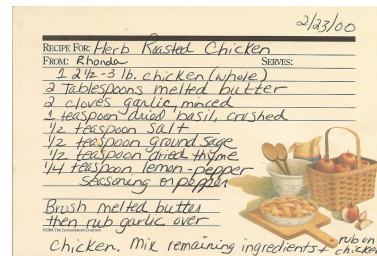 2/23/00
RECIPE FOR: Herb Roasted Chicken
FROM: Rhonda SERVES:
1 2 1/2-3 lb. chicken (whole)
2 Tablespoons melted butter
2 cloves garlic, minced
1 teaspoon dried basil, crushed
1/2 teaspoon salt
1/2 teaspoon ground sage
1/2 teaspoon dried thyme
1/4 teaspoon lemon-pepper
seasoning or pepper
Brush melted butter
then rub garlic over
©1994 THE LONGABERGER COMPANY
chicken. Mix remaining ingredients + rub on
chicken